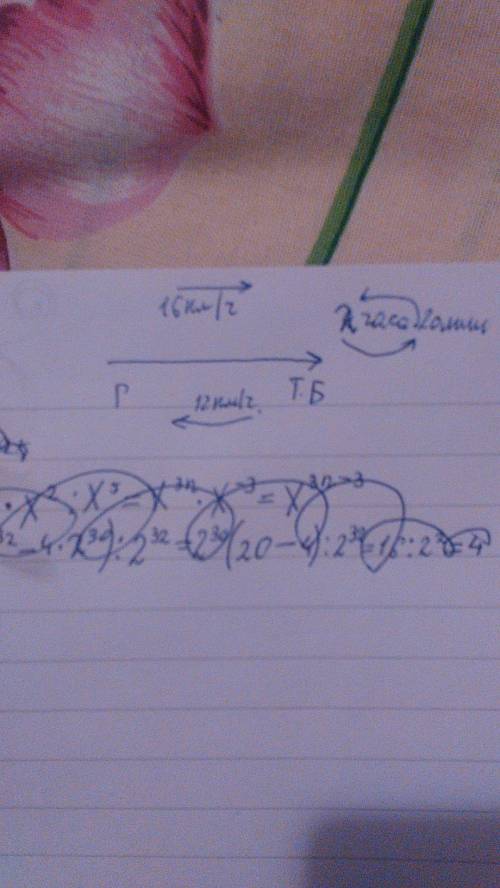 16 км/ч
часа 20 мин
Г 12 км/ч. Т.Б
· x² · x⁵ = x³ⁿ · x⁻³ = x³ⁿ⁻³
³² − 4 · 2³⁰) : 2³² = 2³⁰(20 − 4) : 2³² = 16 : 2² = 4